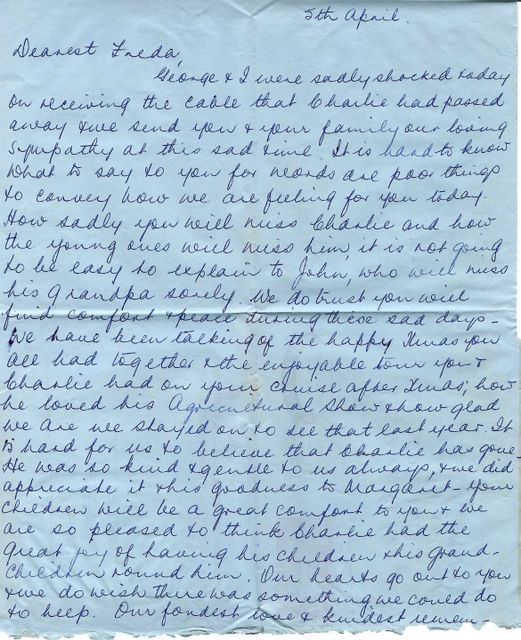 5th April.
Dearest Freda,
George & I were sadly shocked today
on receiving the cable that Charlie had passed
away & we send you & your family our loving
sympathy at this sad time. It is hard to know
what to say to you for words are poor things
to convey how we are feeling for you today.
How sadly you will miss Charlie and how
the young ones will miss him, it is not going
to be easy to explain to John, who will miss
his Grandpa sorely. We do trust you will
find comfort & peace during these sad days -
We have been talking of the happy Xmas you
all had together & the enjoyable tour you &
Charlie had on your cruise after Xmas; how
he loved his Agricultural Show & how glad
we are we stayed on to see that last year. It
is hard for us to believe that Charlie has gone -
He was so kind & gentle to us always, & we did
appreciate it & his goodness to Margaret. Your
children will be a great comfort to you & we
are so pleased to think Charlie had the
great joy of having his children & his grand-
children round him. Our hearts go out to you
& we do wish there was something we could do
to help. Our fondest love & kindest remem-